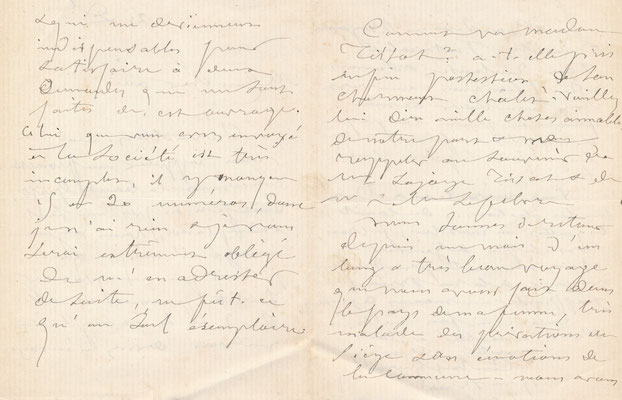 qui me deviennent
indispensables pour
satisfaire à deux
demandes qui me sont
faites de cet ouvrage.
Celui que vous avez envoyé
à la Société est très
incomplet, il y manque
15 et 20 numéros, dans
je n'ai rien & je vous
serai extrêmement obligé
de m'en adresser
de suite, ne fût-ce
qu'un seul exemplaire
Comment va madame
Tissot? a-t-elle pris
enfin possession de son
charmant châlet? Veuillez
lui dire mille choses aimables
de notre part & nous
rappeler au souvenir de
Tissot & de
Lefebvre
nous sommes de retour
depuis un mois d'un
long & très beau voyage
que nous avons fait dans
le pays de ma femme, très
malade des privations du
siège & des émotions de
la commune - nous avons